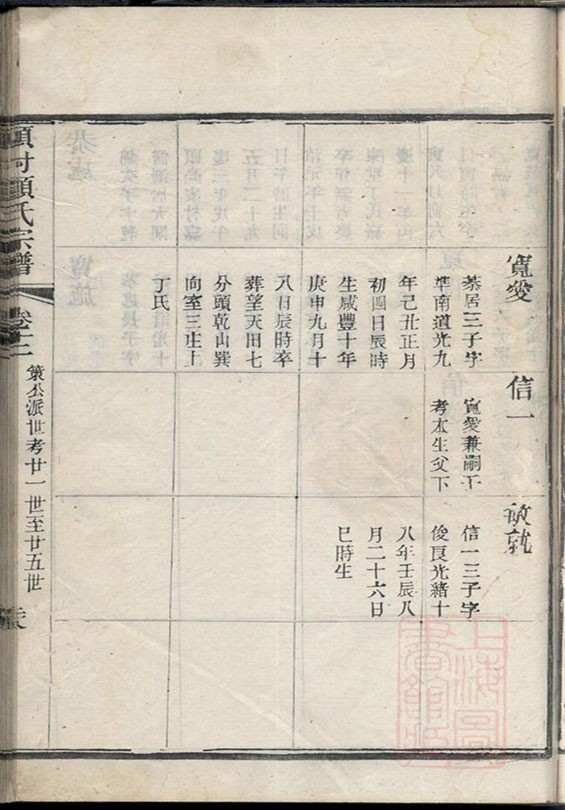 寬愛
恭居三子字
準南道光九
年己丑正月
初四日辰時
生咸豐十年
庚申九月十
八日辰時卒
葬望天田七
分頭乾山巽
向室三庄上
丁氏
信一
寬愛兼嗣子
考本生父下
敏就
信一三子字
俊良光緒十
八年壬辰八
月二十六日
巳時生
項村項氏宗譜
卷十二
策公派世考廿一世至廿五世
上海圖
書館藏